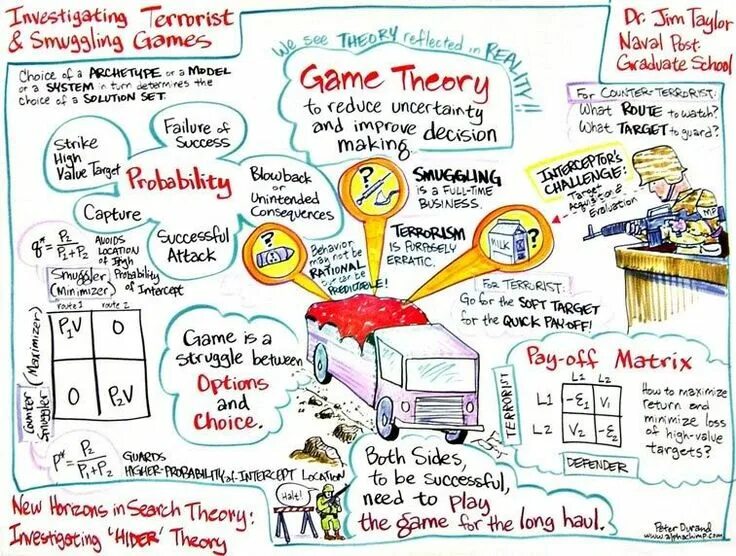 Investigating Terrorist
& Smuggling Games
Choice of a ARCHETYPE or a MODEL
or a SYSTEM in turn determines the
choice of a SOLUTION SET.
We see THEORY reflected in REALITY!!
Game Theory
to reduce uncertainty
and improve decision
making
Dr. Jim Taylor
Naval Post.
Graduate School
For COUNTER-TERRORIST:
What ROUTE to watch?
What TARGET to guard?
INTERCEPTOR'S
CHALLENGE:
Target
Acquisition &
Evaluation
MP
Probability
Strike
High
Value Target
Failure of
Success
Blowback
or
Unintended
Consequences
Successful
Attack
Capture
?
?
MILK
?
SMUGGLING
is a FULL-TIME
BUSINESS.
TERRORISM
is PURPOSELY
ERRATIC.
Behavior
may not be
RATIONAL
but can be
PREDICTABLE!
For TERRORIST:
Go for the SOFT TARGET
for the QUICK PAYOFF!
q* = P2
P1 + P2
AVOIDS
LOCATION
of High
Probability
of Intercept
Smuggler
(Minimizer)
route 1 route 2
Counter
Smuggler
(Maximizer)
P1V 0
0 P2V
p* = P2
P1 + P2
GUARDS
HIGHER-PROBABILITY-of-INTERCEPT LOCATION
Game is a
struggle between
Options
and
Choice.
Pay-off Matrix
TERRORIST
L1 L2
L1 -ε1 V1
L2 V2 -ε2
DEFENDER
How to maximize
return end
minimize loss
of high-value
targets?
Halt!
Both Sides,
to be successful,
need to play
the game for the long haul.
New Horizons in Search Theory:
Investigating 'HIDER' Theory
Peter Durand
www.alphachimp.com